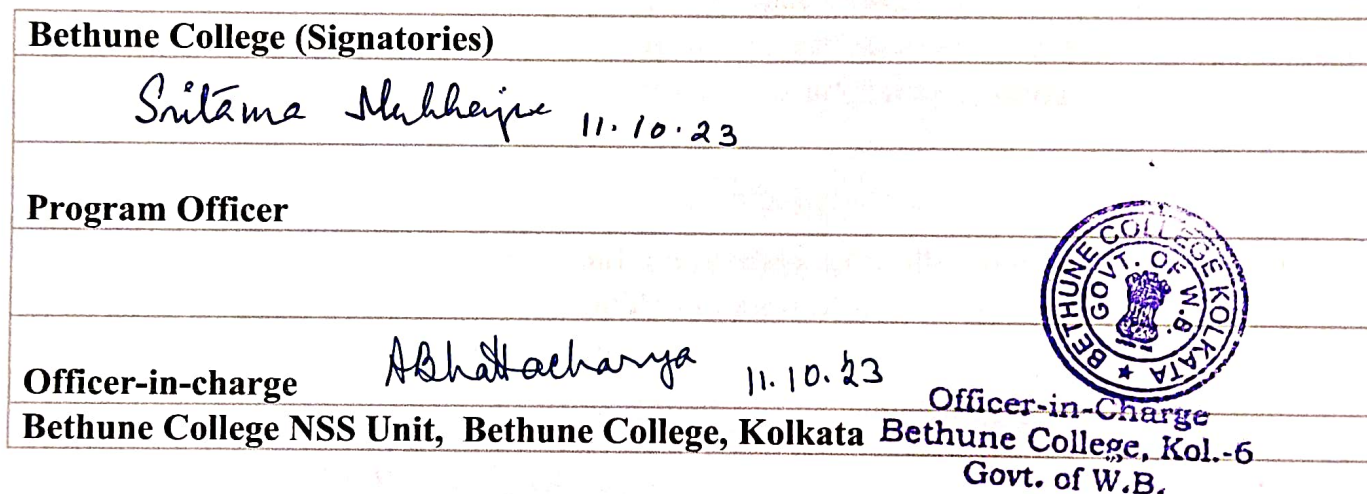 Bethune College (Signatories)
Sritama Mukherjee 11.10.23
Program Officer
BETHUNE COLLEGE KOLKATA ★
GOVT. OF W.B.
Officer-in-charge ABhattacharya 11.10.23
Officer-in-Charge
Bethune College NSS Unit, Bethune College, Kolkata
Bethune College, Kol.-6
Govt. of W.B.